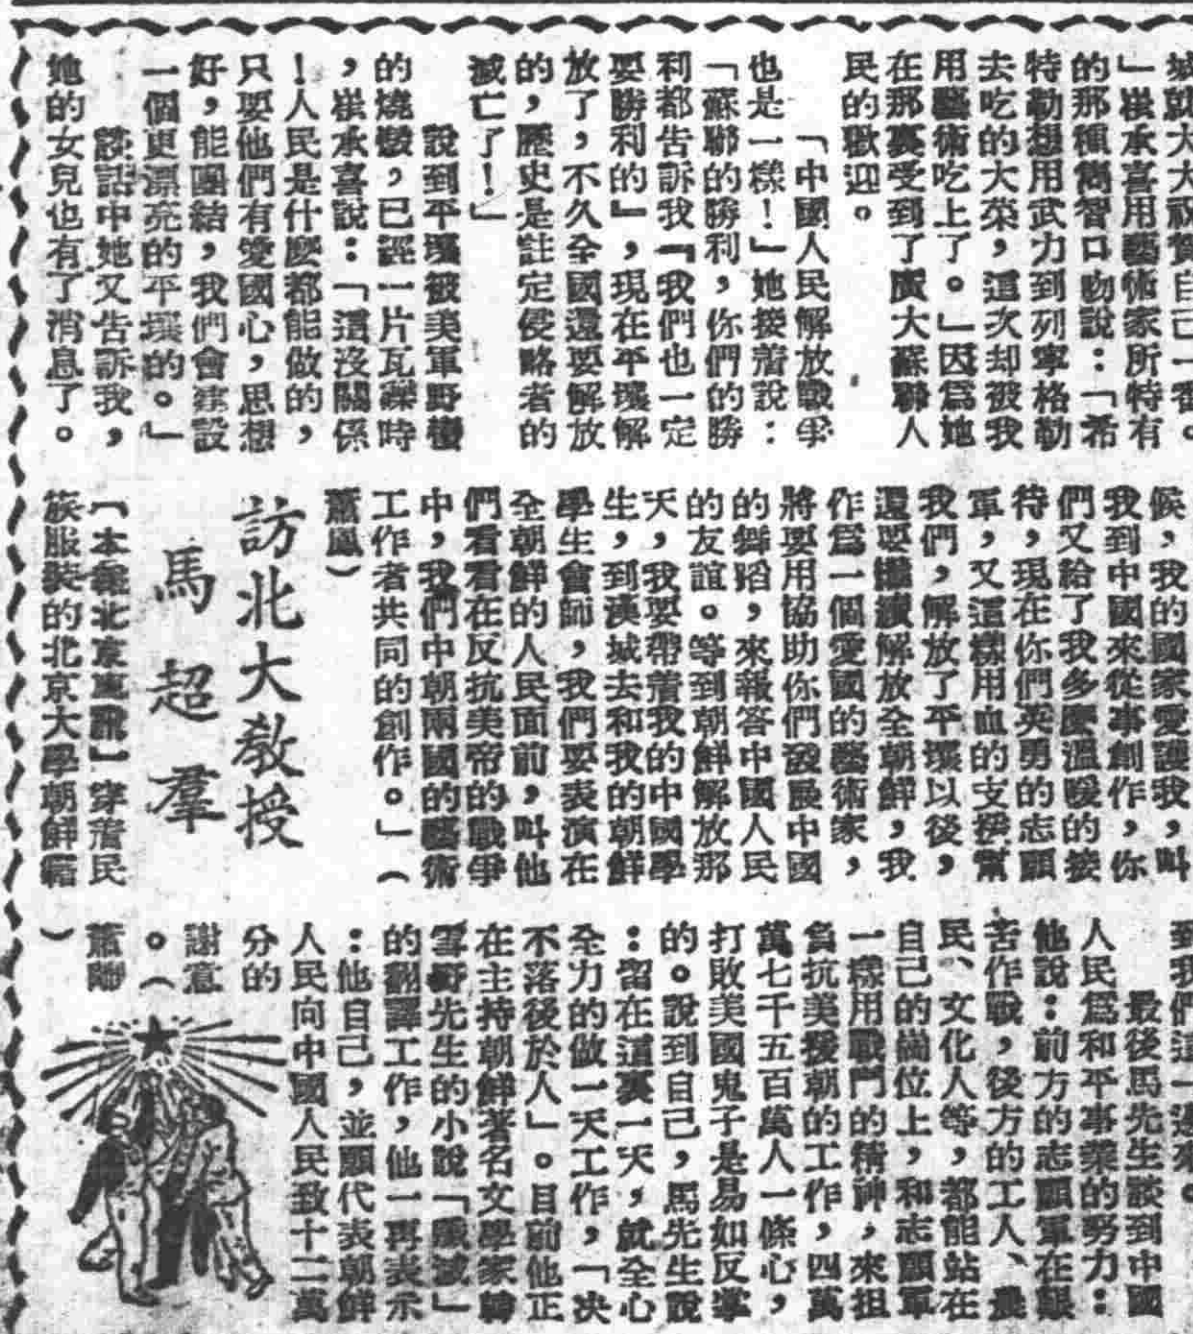 城就大大祝賀自己一番。
」崔承喜用藝術家所特有
的那種簡智口吻說：「希
特勒想用武力到列寧格勒
去吃的大菜，這次却被我
用藝術吃上了。」因爲她
在那裏受到了廣大蘇聯人
民的歡迎。
「中國人民解放戰爭
也是一樣！」她接着說：
「蘇聯的勝利，你們的勝
利都告訴我『我們也一定
要勝利的』，現在平壤解
放了，不久全國還要解放
的，歷史是註定侵略者的
滅亡了！」
說到平壤被美軍野蠻
的燒燬，已經一片瓦礫時
，崔承喜說：「這沒關係
！人民是什麼都能做的，
只要他們有愛國心，思想
好，能團結，我們會建設
一個更漂亮的平壤的。」
談話中她又告訴我，
她的女兒也有了消息了。
候，我的國家愛護我，叫
我到中國來從事創作，你
們又給了我多麼溫暖的接
待，現在你們英勇的志願
軍，又這樣用血的支援幫
我們，解放了平壤以後，
還要繼續解放全朝鮮，我
作爲一個愛國的藝術家，
將要用協助你們發展中國
的舞蹈，來報答中國人民
的友誼。等到朝鮮解放那
天，我要帶着我的中國學
生，到漢城去和我的朝鮮
學生會師，我們要表演在
全朝鮮的人民面前，叫他
們看看在反抗美帝的戰爭
中，我們中朝兩國的藝術
工作者共同的創作。」（
蕭鳳）
訪北大教授
馬超羣
【本報北京專訊】穿着民
族服裝的北京大學朝鮮籍
到我們這一邊來。
最後馬先生談到中國
人民爲和平事業的努力：
他說：前方的志願軍在艱
苦作戰，後方的工人、農
民、文化人等，都能站在
自己的崗位上，和志願軍
一樣用戰鬥的精神，來担
負抗美援朝的工作，四萬
萬七千五百萬人一條心，
打敗美國鬼子是易如反掌
的。說到自己，馬先生說
：留在這裏一天，就全心
全力的做一天工作，「决
不落後於人」。目前他正
在主持朝鮮著名文學家韓
雪野先生的小說「　滅」
的翻譯工作，他一再表示
：他自己，並願代表朝鮮
人民向中國人民致十二萬
分的
謝意
。（
蕭
）